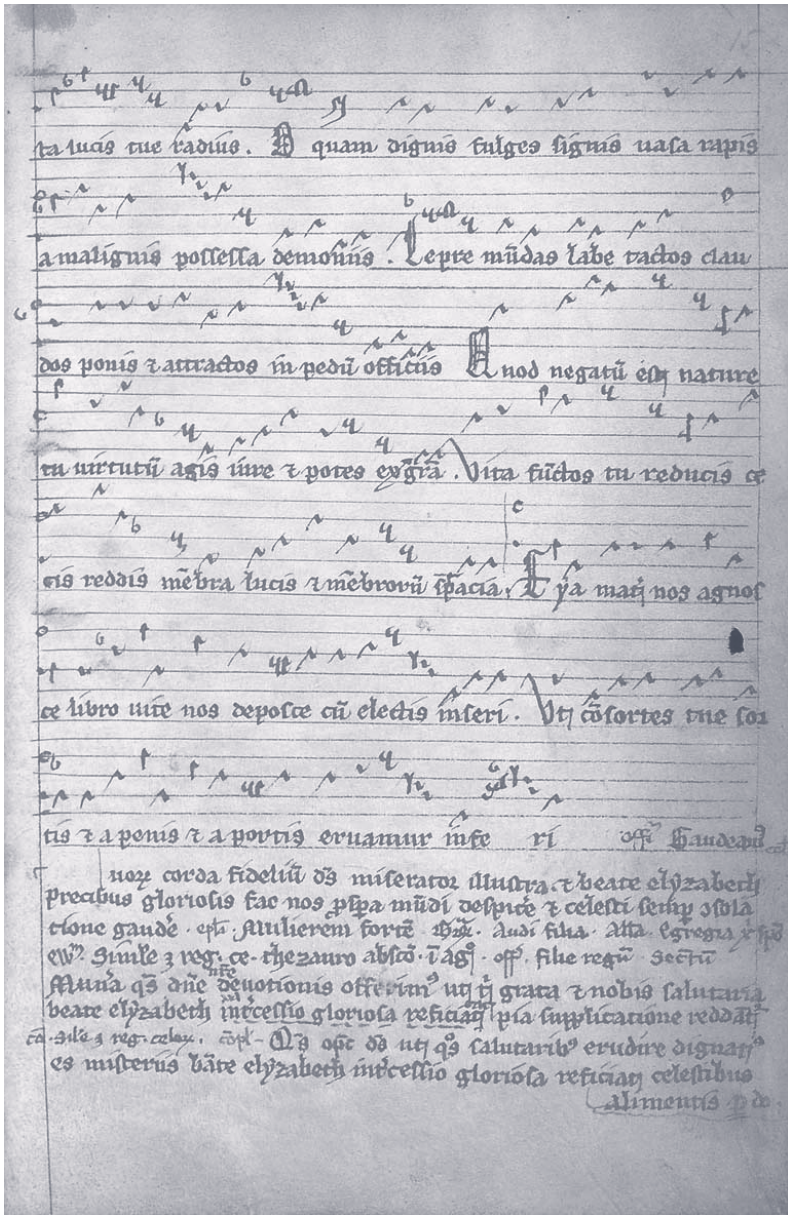 ta lucis tue radius. O quam dignis fulges signis uasa rapis
a malignis possessa demoniis. Lepre mūdas labe tactos clau
dos ponis ⁊ attractos in pedū officiis Quod negatū est nature
tu uirtutū agis iure ⁊ potes ex gr̄a. Vita fūctos tu reducis ce
cis reddis mēbra lucis ⁊ mēbrorū sp̄acia. Eya mat̄ nos agnos
ce libro uite nos deposce cū electis inseri. Vti cōsortes tue sor
tis ⁊ a penis ⁊ a portis eruamur infe ri off̄m Gaudeamꝰ
uoꝝ corda fidelíū d̄s miserator illustra. ⁊ beate elyzabeth
Precibus gloriosis fac nos p̄spa mūdi despice᷑ ⁊ celesti semp ↄsola
tione gaude᷑. ep̄l. Mulierem fortē. Audi filia. Alla. Egregia
ew̄m. Simile ꝫ reg. ce. thezauro abscō. ī ag. off. filie regū. Sec̄tū
Mun̄a q̄s dn̄e deuotionis offerimꝰ grata ⁊ nobis salutaria
beate elyzabeth int̄cessio gloriosa reficiat pia supplicatione reddat
cō. Sile ꝫ reg. celoꝝ. cōpl. d̄s salutaribꝰ erudire dignatꝰ
es misteriis bāte elyzabeth int̄cessio gloriosa reficiat celestibus
alimentis p̄ do.